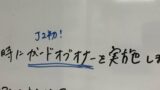 J2初!
時にガードオブオナーを実施し